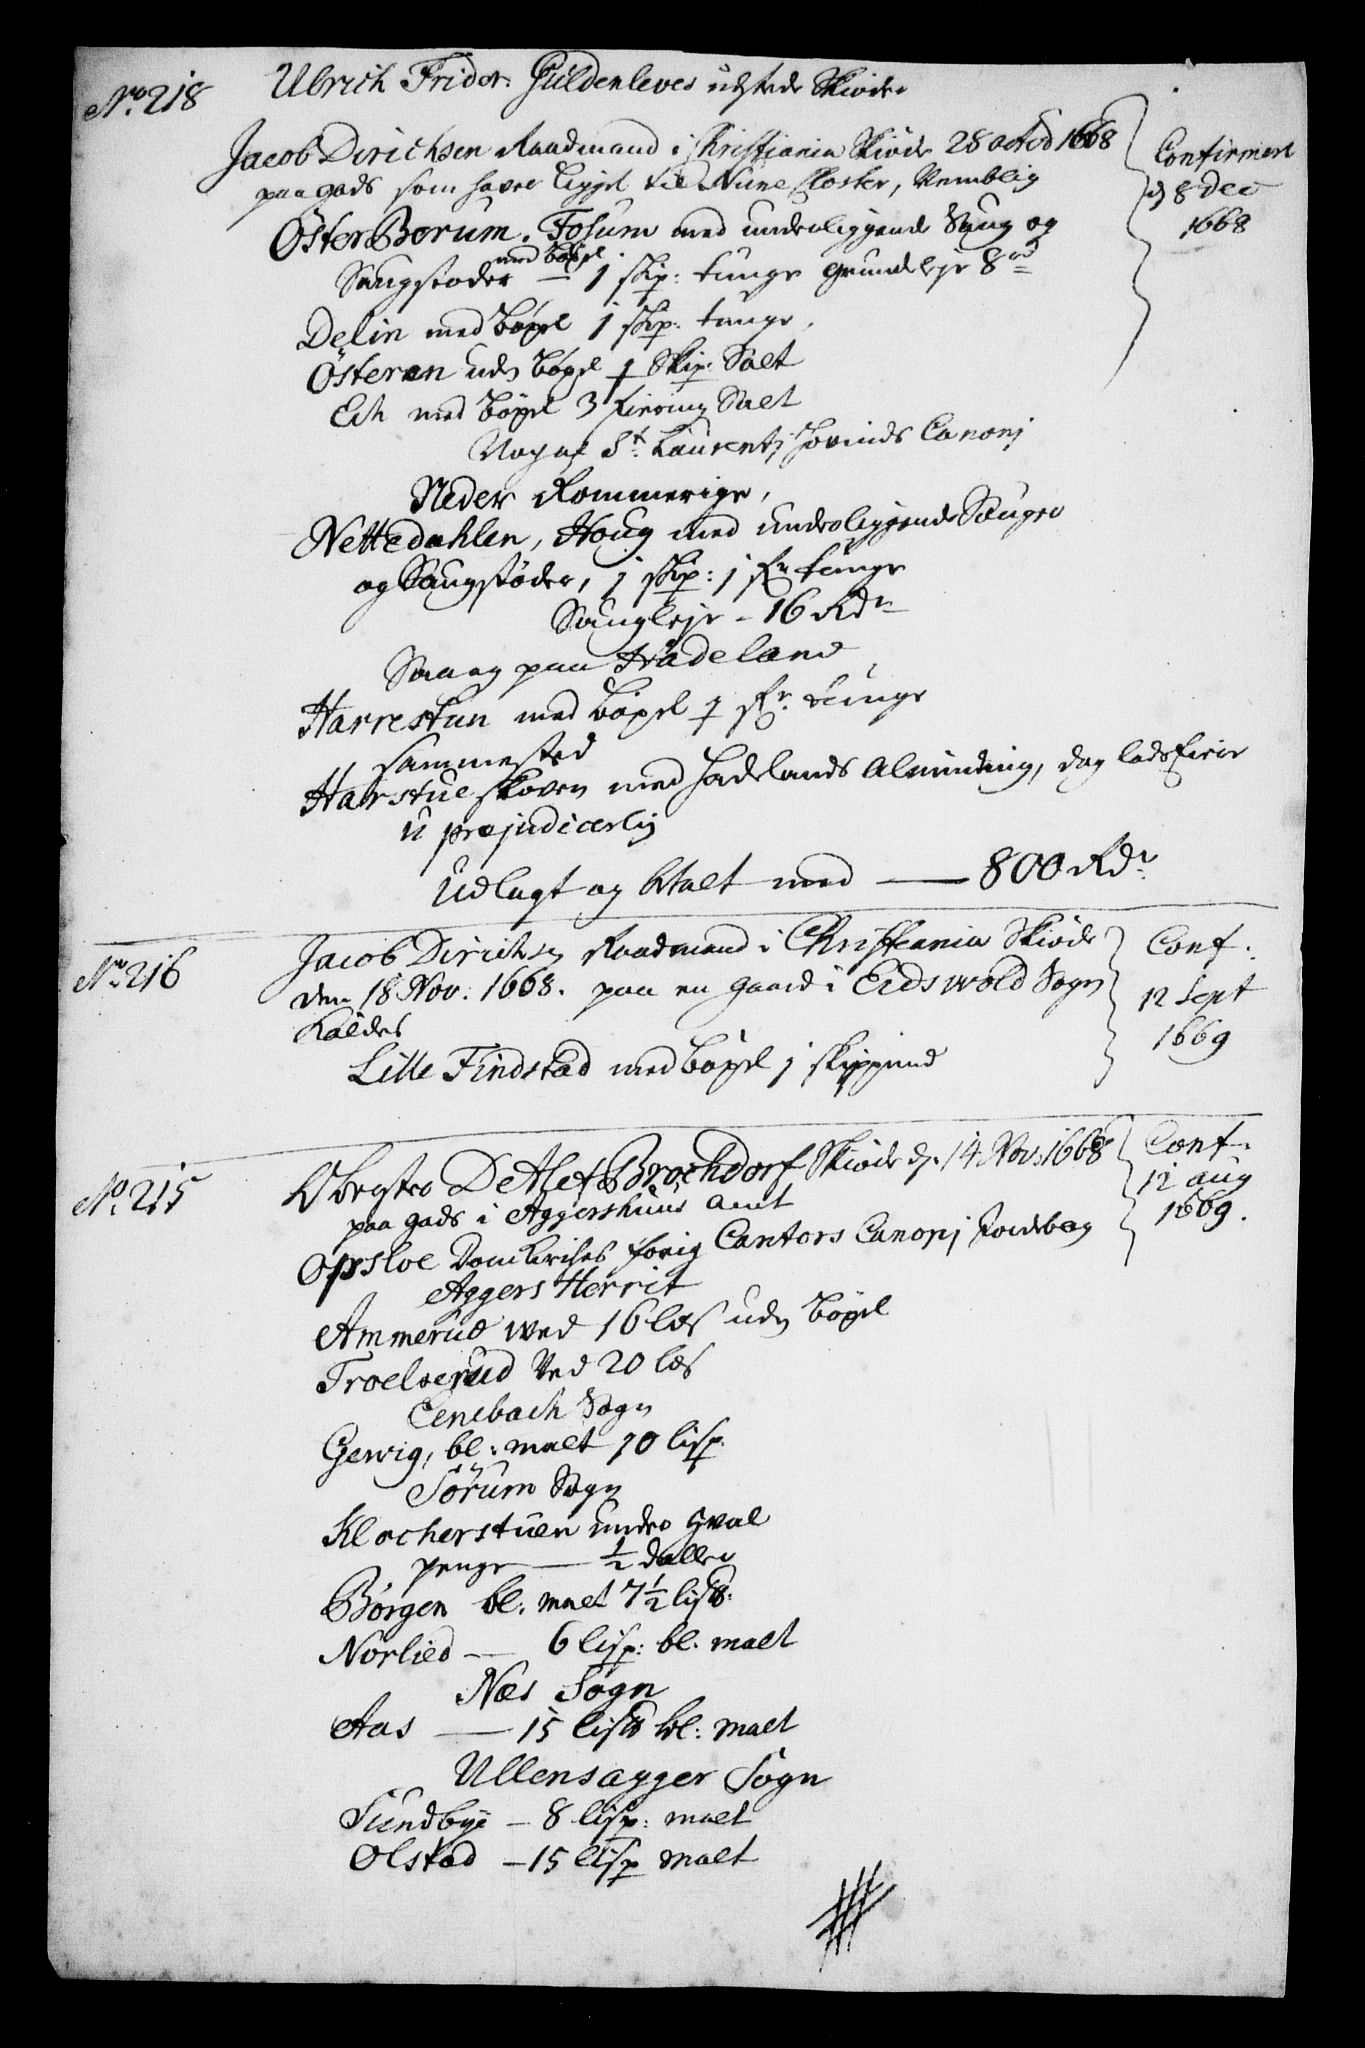 No. 218 Ulrich Fridr. Güldenleves udstede Skiøder
Jacob Dirichsen Raadmand i Christiania Skiøde 28 octob 1668
Confirmert
paa gods som haver ligget til Nune Closter, Nemblig
d 8 Dec
1668
Öster Berum. Fosum med underliggende Saug og
med bøxel
Saugstøder — 1 skip: tunge grundleje 8 rd
Delin med bøxel 1 skip: tunge,
Österøen uden bøxel 1 Skip: Salt
Ech med bøxel 3 fiering Salt
Nog af St. Laurentj Hovinds Canonj
Neder Rommerige,
Nettedahlen, Houg med underliggende Sauger
og Saugstøder, 1 skip: 1 fr tunge
Saugleje - 16 Rdr
Saaog paa Hadeland,
Harrestun med bøxel 1 fr. tunge
sammested
Harstue skoven med Hadelands Alminding, dog lads
u præjudicerlig
Udlagt og btalt med — 800 Rdr.
No 216 Jacob Dirichsen Raadmand i Christiania Skiøde
Conf.
den 18 Nov: 1668. paa en gaard i Eidswold Sogn
12 Sept
1669
Kaldes
Lille Findstad med bøxel 1 skippund
No. 215 Obrister Detlef Brochdorf Skiøde d. 14 Nov: 1668
Conf.
12 aug
1669.
paa gods i Aggershuus Amt
Opsloe Domkirches forig Cantors Canonj
Aggers Herrit
Ammerud wed 16 læs uden bøxel
Troelserud Ved 20 læs
Eenebach Sogn
Gervig, bl: malt 10 lisp.
Sørum Sogn
Klocherstuen under qval
penge — ½ daller
Børgen bl. malt 7½ lis℔.
Nørlied — 6 lisp: bl. malt
Næs Sogn
Aas — 15 lis℔ bl: malt
Ullensagger Sogn
Sundbye — 8 lisp: malt
Ølstad — 15 lisp malt